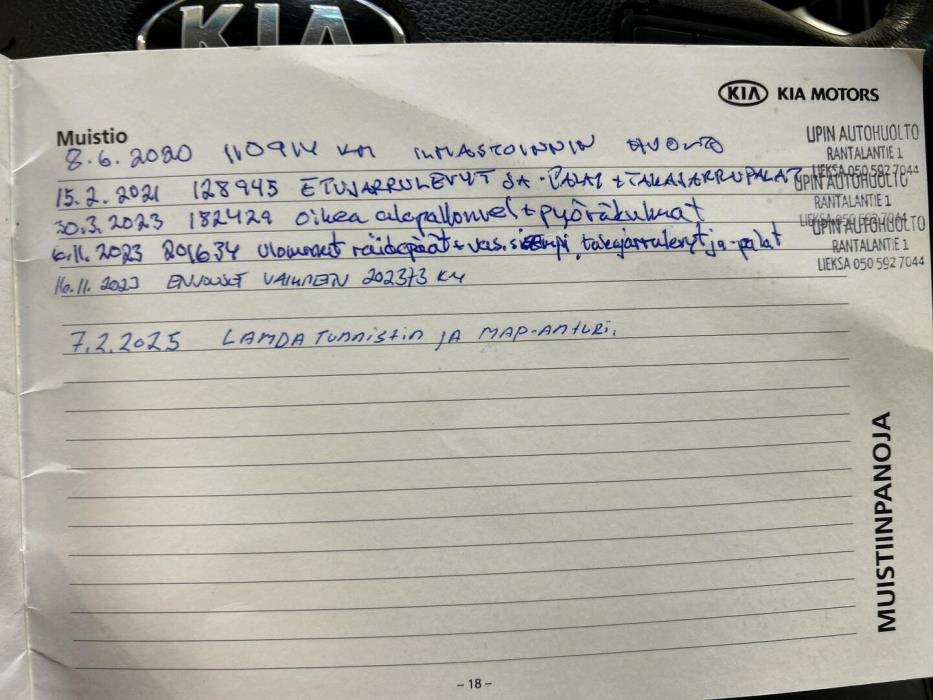 KIA
KIA KIA MOTORS
Muistio
UPIN AUTOHUOLTO
RANTALANTIE 1
LIEKSA 050 592 7044
8.6.2020 110914 KM ILMASTOINNIN HUOLTO
15.2.2021 128945 ETUJARRULEVYT JA -PALAT + TAKAJARRUPALAT
UPIN AUTOHUOLTO
RANTALANTIE 1
LIEKSA 050 592 7044
30.3.2023 182429 Oikea alapallonivel + pyöränkulmat
UPIN AUTOHUOLTO
RANTALANTIE 1
LIEKSA 050 592 7044
6.11.2023 201634 Ulommat raidepäät + vas. takajarrulevyt ja -palat
16.11.2023 202373 KM
7.2.2025 LAMDA TUNNISTIN JA MAP-ANTURI.
MUISTIINPANOJA
– 18 –